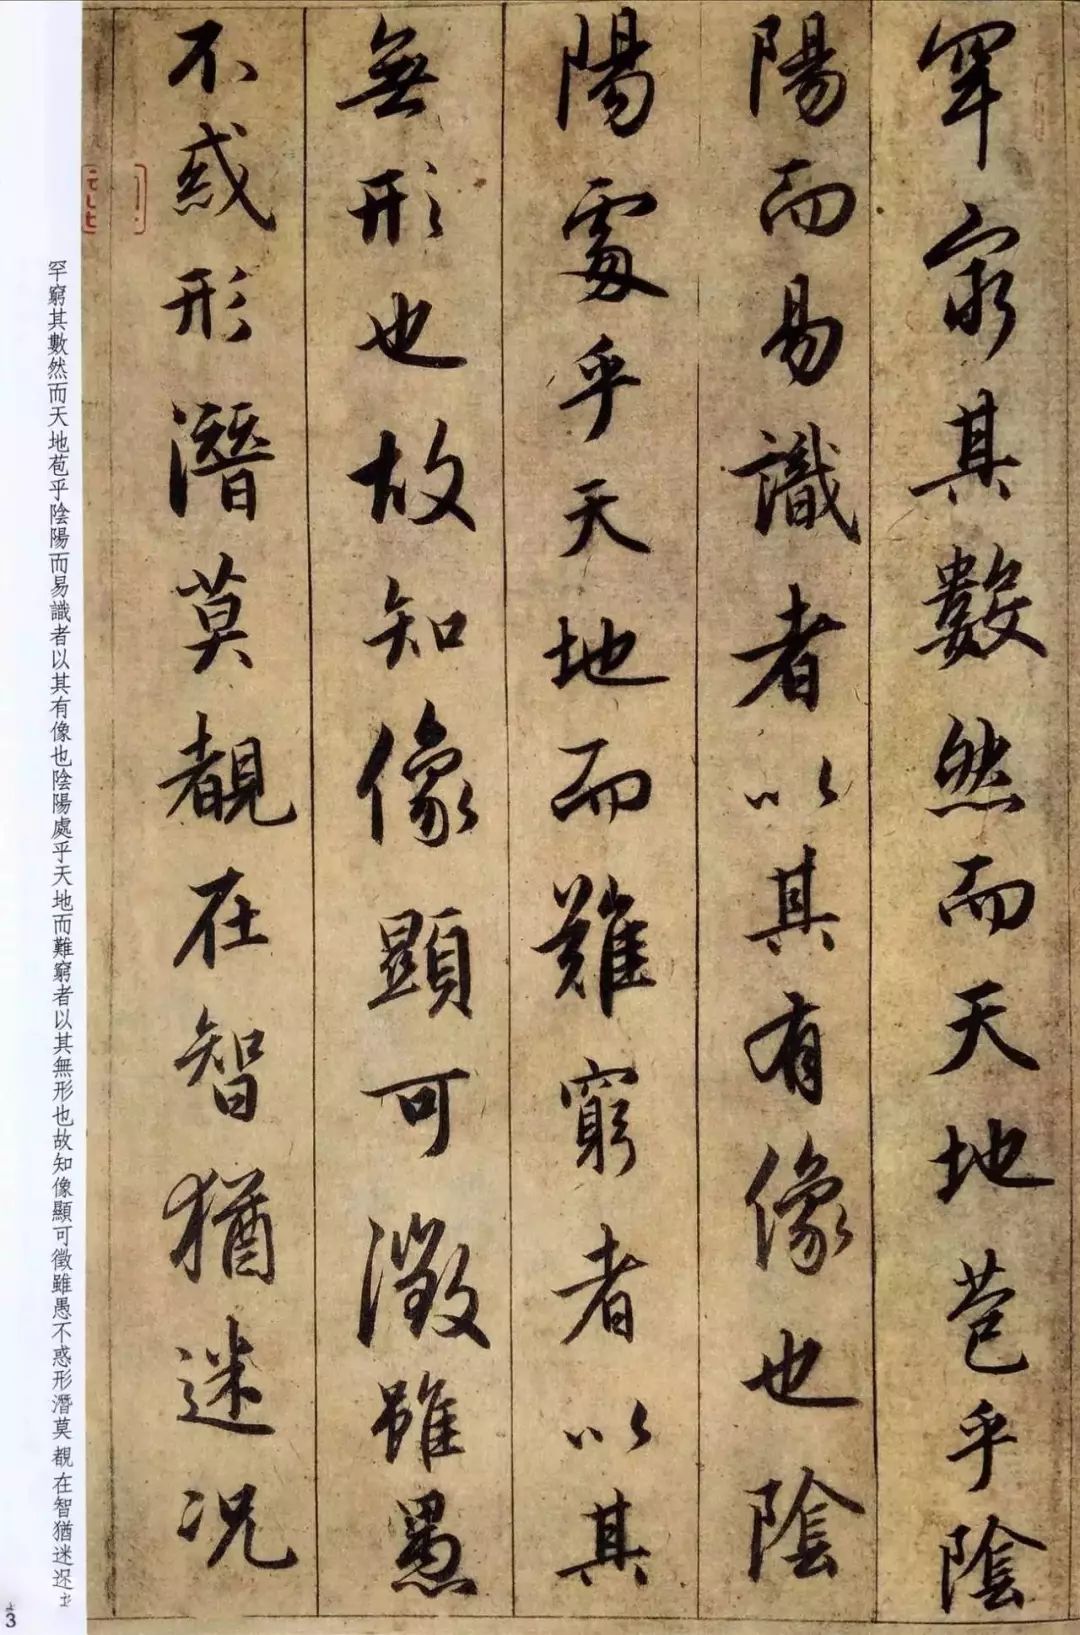 罕窮其數然而天地苞乎陰
陽而易識者以其有像也陰
陽處乎天地而難窮者以其
無形也故知像顯可徵雖愚
不惑形潛莫覩在智猶迷況
罕窮其數然而天地苞乎陰陽而易識者以其有像也陰陽處乎天地而難窮者以其無形也故知像顯可徵雖愚不惑形潛莫覩在智猶迷
3